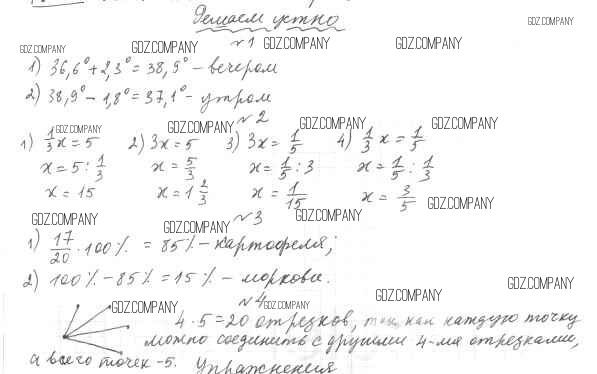 Решаем устно
GDZ.COMPANY
GDZ.COMPANY №1 GDZ.COMPANY GDZ.COMPANY
1) 36,6° + 2,3° = 38,9° – вечером
2) 38,9° – 1,8° = 37,1° – утром
GDZ.COMPANY GDZ.COMPANY №2 GDZ.COMPANY GDZ.COMPANY
1) 1/3 x = 5 2) 3x = 5 3) 3x = 1/5 4) 1/3 x = 1/5
x = 5 : 1/3 x = 5/3 x = 1/5 : 3 x = 1/5 : 1/3
x = 15 x = 1 2/3 x = 1/15 x = 3/5 GDZ.COMPANY
GDZ.COMPANY GDZ.COMPANY №3 GDZ.COMPANY
1) 17/20 · 100% = 85% – картофеля;
2) 100% – 85% = 15% – моркови.
GDZ.COMPANY №4 GDZ.COMPANY GDZ.COMPANY GDZ.COMPANY
4 · 5 = 20 отрезков, так как каждую точку
можно соединить с другими 4-мя отрезками,
а всего точек – 5. Упражнения